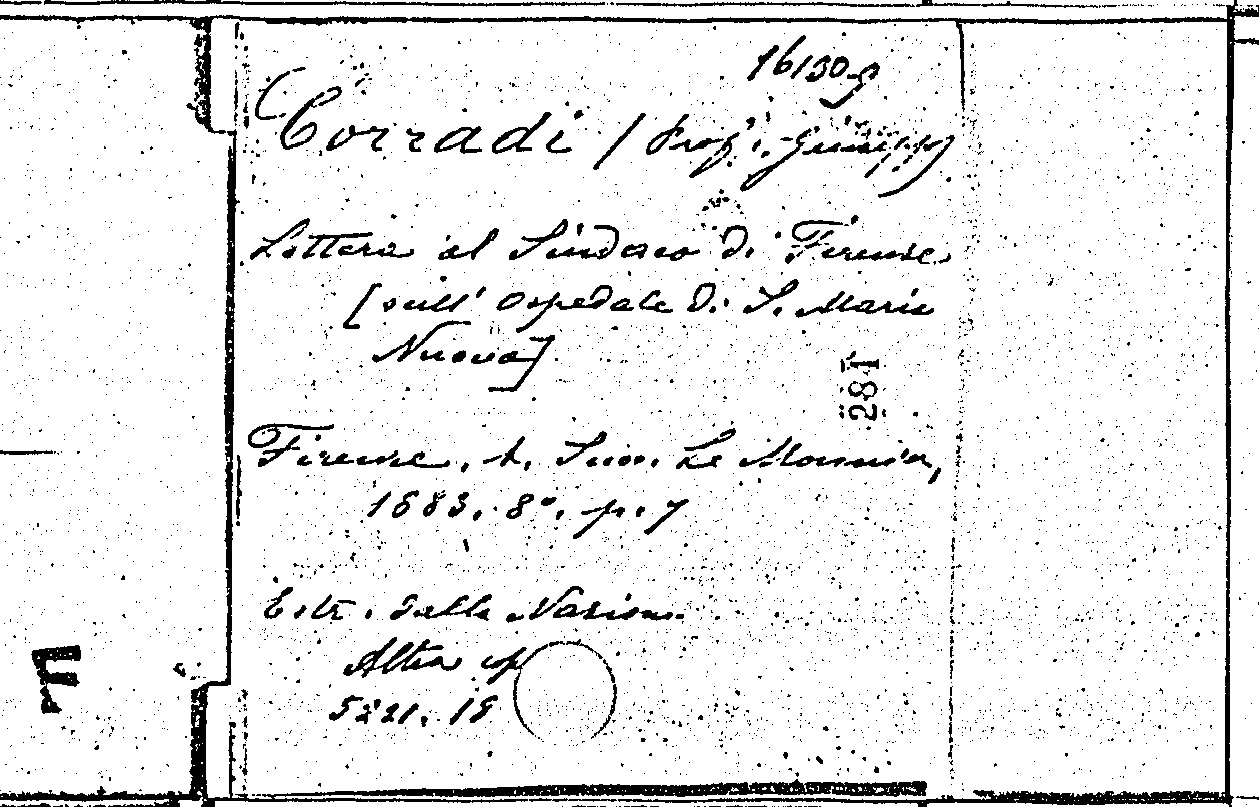 16130.9
Corradi / Prof. Giuseppe
Lettera al Sindaco di Firenze
[sull' Ospedale di S. Maria
Nuova]
281
Firenze, t. Succ. Le Monnier,
1883. 8°. p. 7
Estr. dalla Nazione
Altra cop
5221. 18